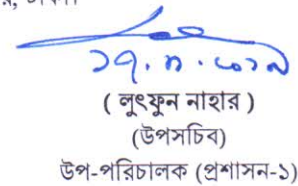 ( লুৎফুন নাহার )
(উপসচিব)
উপ-পরিচালক (প্রশাসন-১)